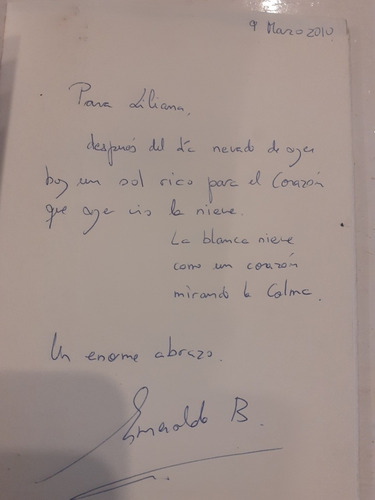 9 Marzo 2010
Para Liliana,
después del día nevado de ayer
hoy un sol rico para el Corazón
que ayer vio la nieve.
La blanca nieve
como un corazón
mirando la Calma.
Un enorme abrazo.
B.